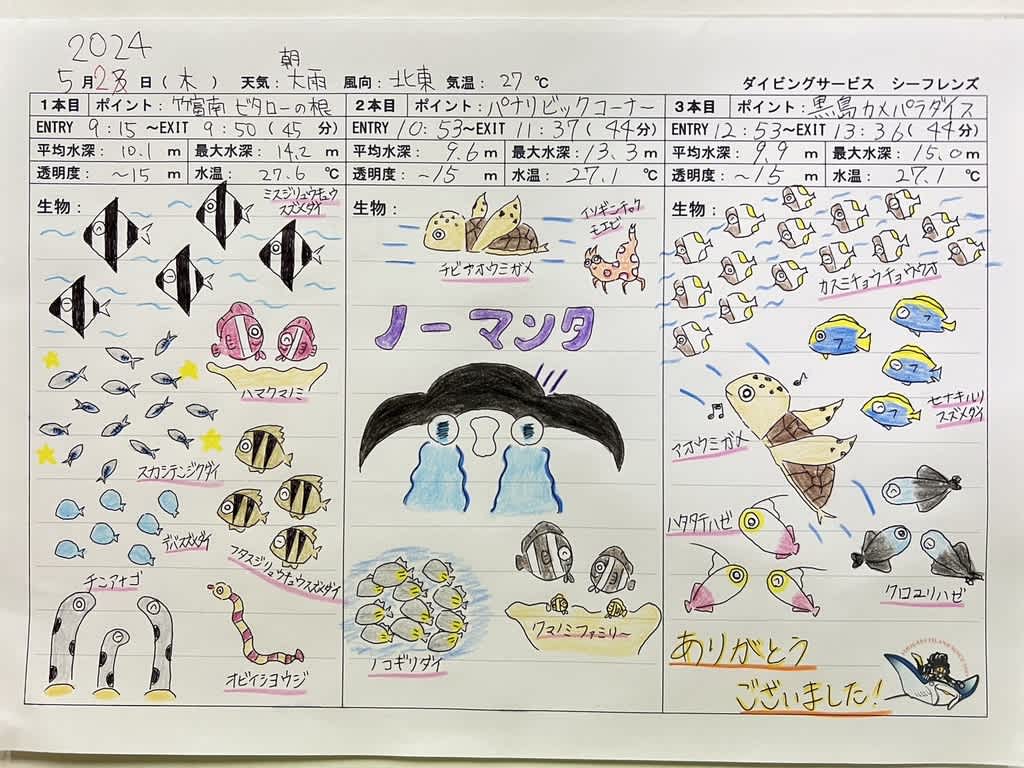 2024
5月23日(木) 天気:朝大雨 風向:北東 気温:27℃ ダイビングサービス シーフレンズ
1本目 ポイント:竹富南 ビタローの根
ENTRY 9:15~EXIT 9:50(45分)
平均水深:10.1m 最大水深:14.2m
透明度:~15m 水温:27.6℃
生物:
ミスジリュウキュウ
スズメダイ
ハマクマノミ
スカシテンジクダイ
デバスズメダイ
フタスジリュウキュウスズメダイ
チンアナゴ
オビイシヨウジ
2本目 ポイント:パナリビックコーナー
ENTRY 10:53~EXIT 11:37(44分)
平均水深:9.6m 最大水深:13.3m
透明度:~15m 水温:27.1℃
生物:
チビアオウミガメ
イソギンチャク
モエビ
ノーマンタ
ノコギリダイ
クマノミファミリー
3本目 ポイント:黒島カメパラダイス
ENTRY 12:53~EXIT 13:36(44分)
平均水深:9.9m 最大水深:15.0m
透明度:~15m 水温:27.1℃
生物:
カスミチョウチョウウオ
セナキルリ
スズメダイ
アオウミガメ
ハタタテハゼ
クロユリハゼ
ありがとう
ございました!